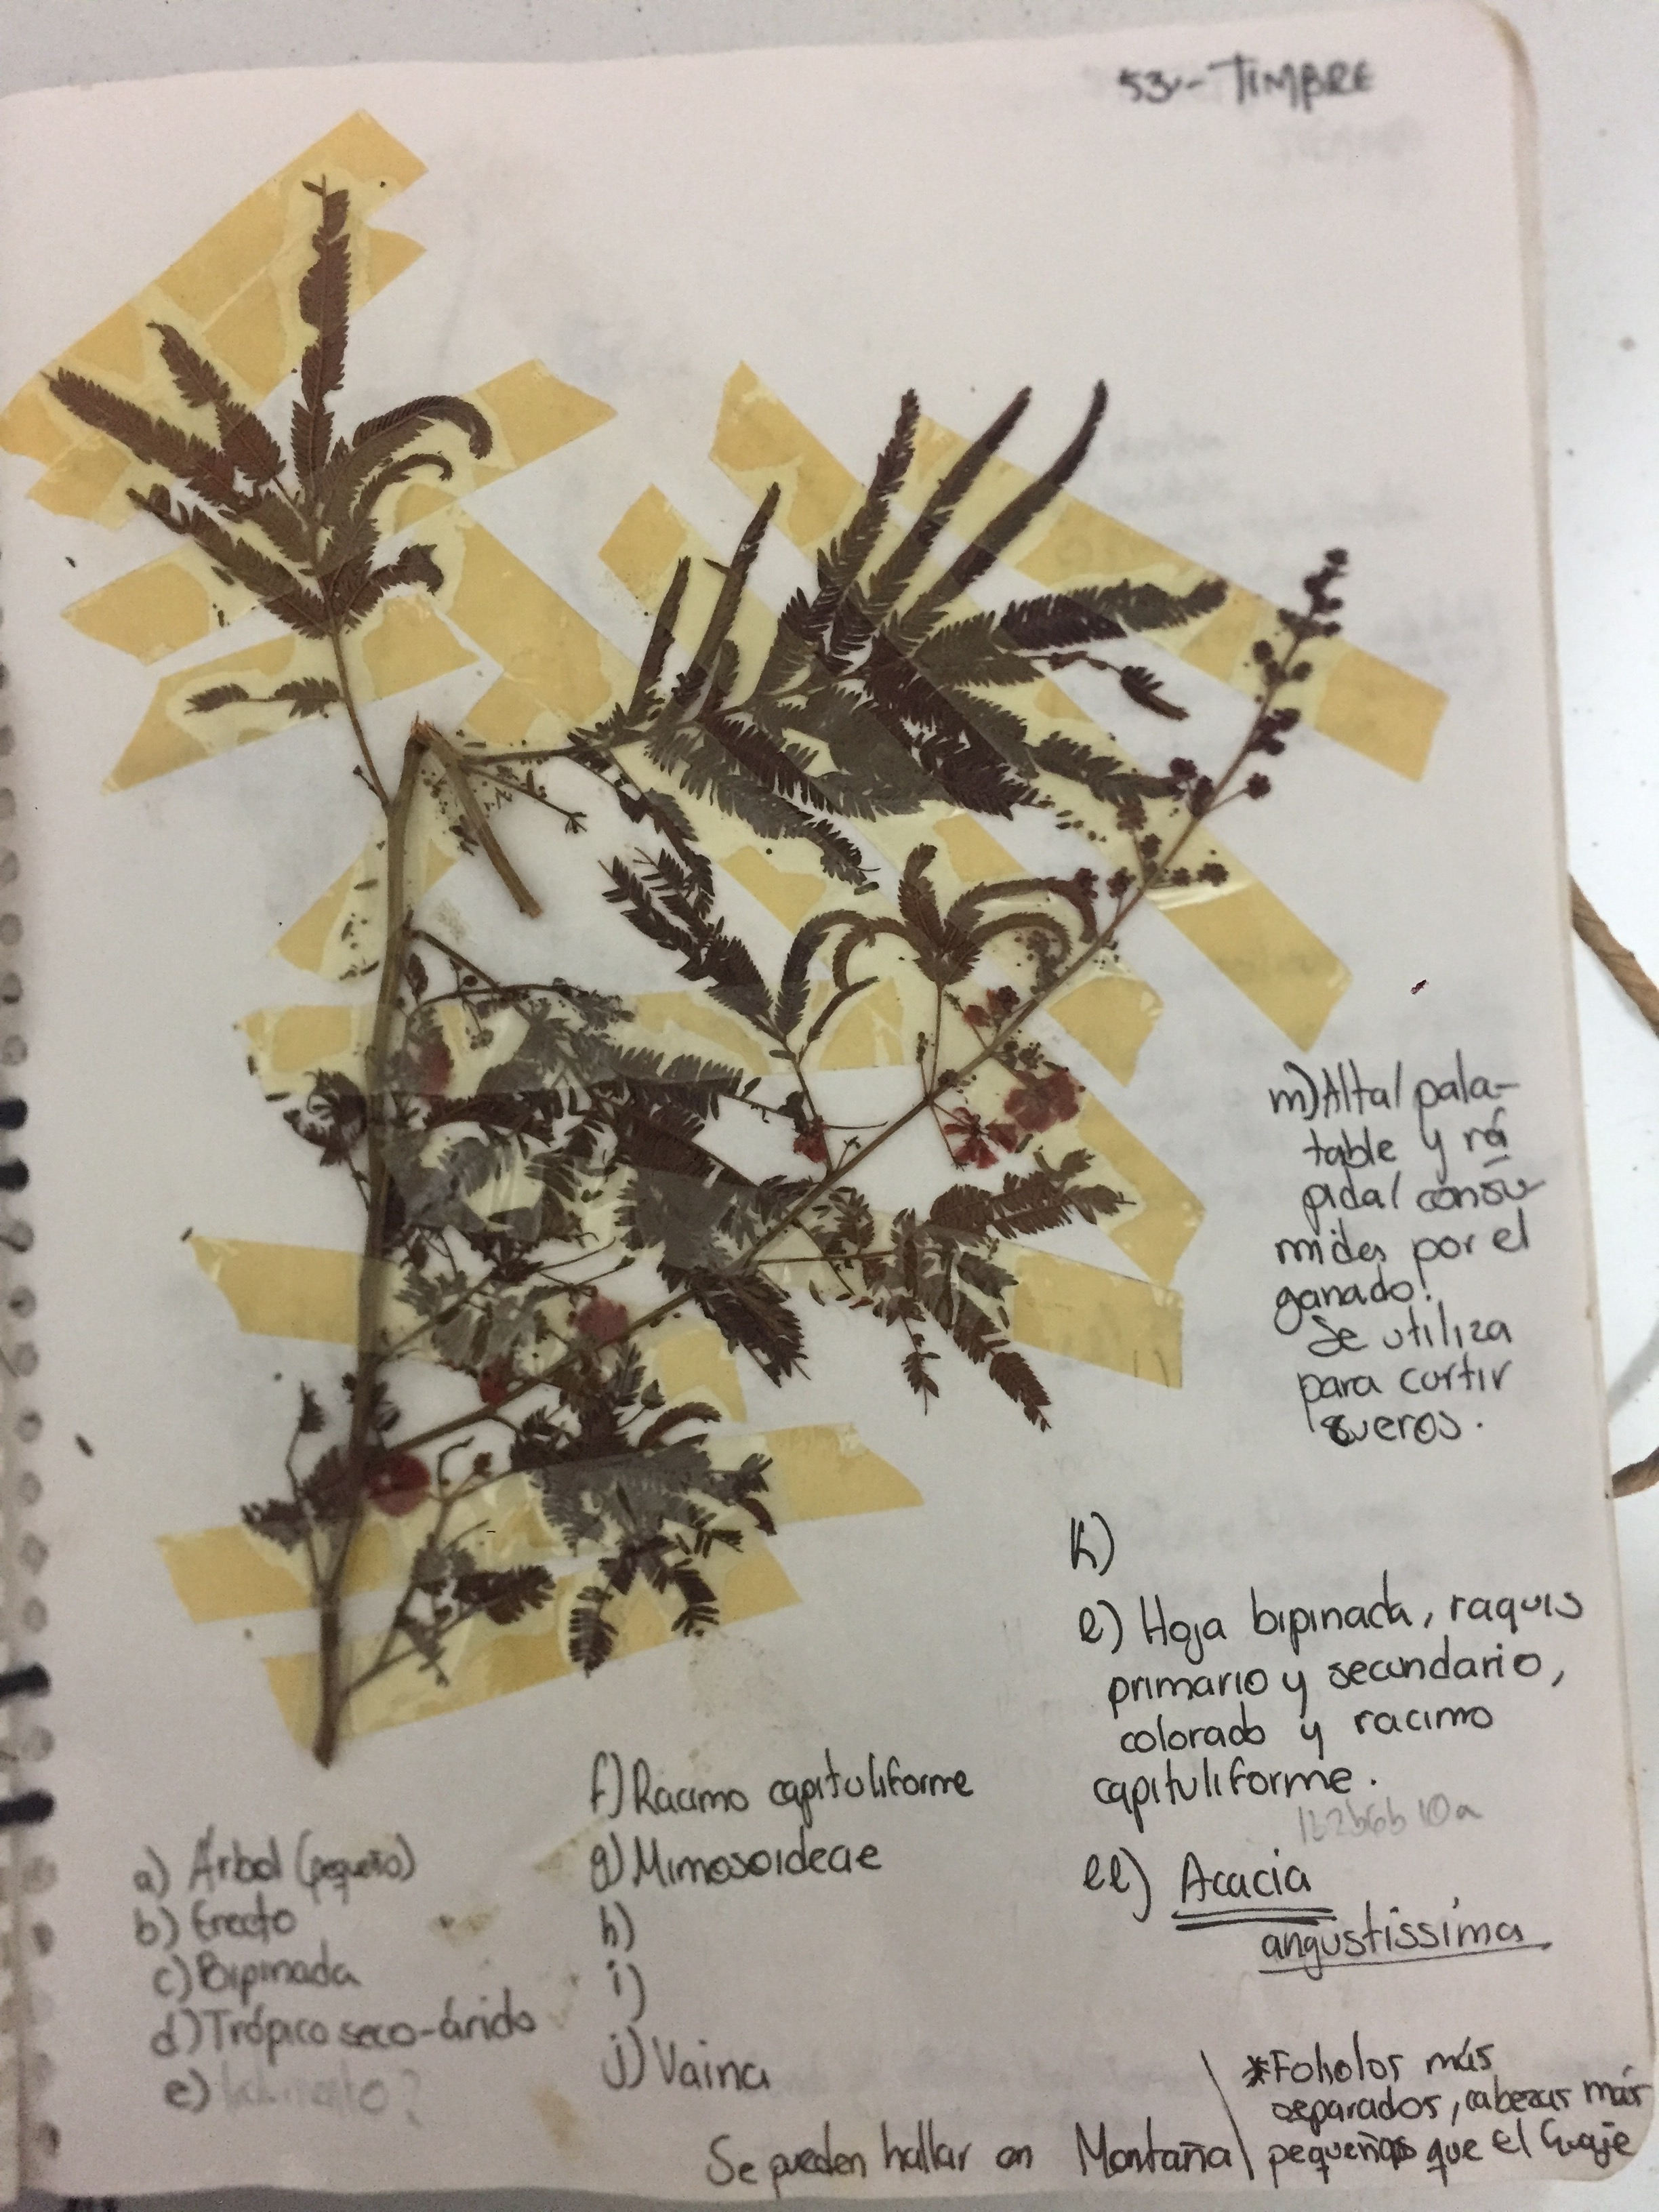 53.- TIMBRE
m) Alta/ pala-
table y rá
pida/ consu
mides por el
ganado!
Se utiliza
para curtir
sueros.
k)
l) Hoja bipinada, raquis
primario y secundario,
colorado y racimo
capituliforme.
1b2b6b10a
ll) Acacia
angustissima
f) Racimo capituliforme
g) Mimosoideae
h)
i)
j) Vaina
a) Árbol (pequeño)
b) Erecto
c) Bipinada
d) Trópico seco-árido
e)
Se pueden hallar en Montaña
*Foliolos más
separados, cabezas más
pequeñas que el Guaje